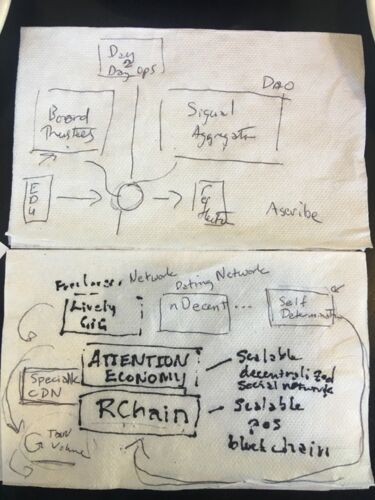 Day
2
Day Ops
DAO
Board
Trustees
Signal
Aggregation
EDU
Ascribe
Freelancer Network
Dating Network
Lively
GiG
nDecent...
Self
Determination
ATTENTION
ECONOMY
Scalable
decentralized
social network
CDN
RChain
Scalable
pos
blockchain
Volume